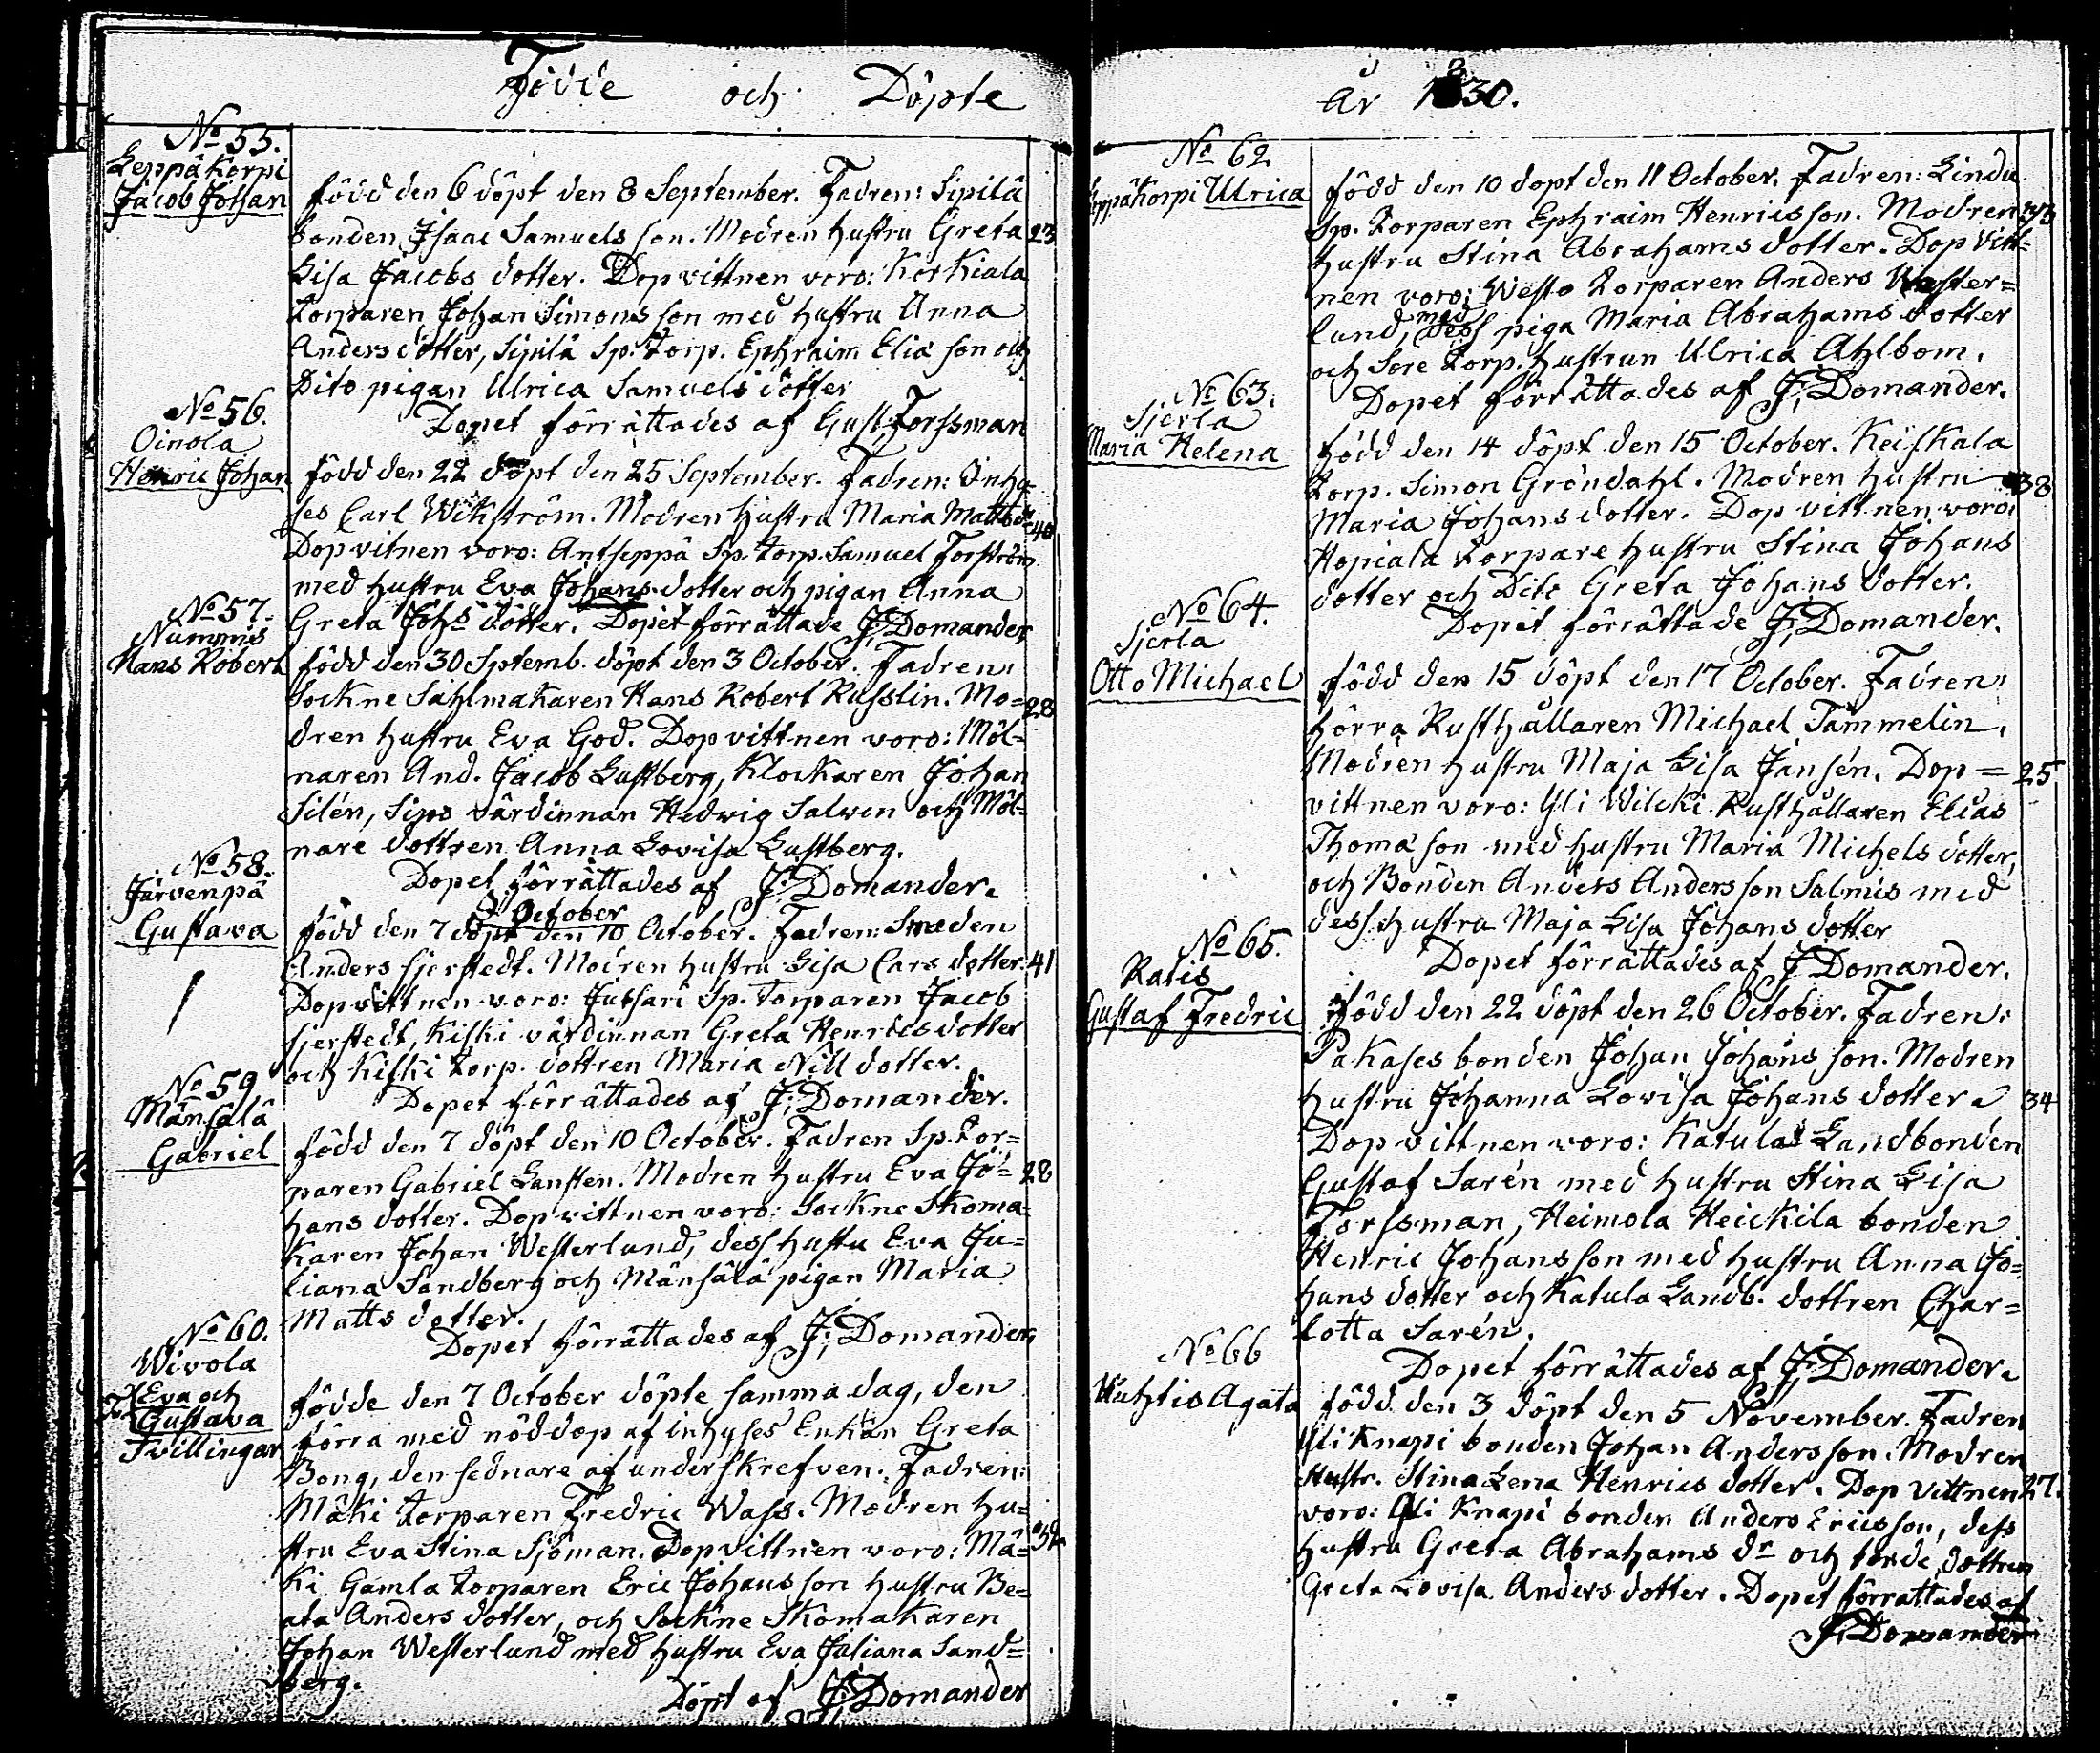 Födde och Döpte
No 55.
Leppäkorpi
Jacob Johan
född den 6 döpt den 8 September. Fadren: Sipilä
bonden Isaac Samuels son. Modren hustru Greta 23
Lisa Jacobs dotter. Dop vittnen voro: Korkiala
Torparen Johan Simons son med hustru Anna
Anders dotter, Sipilä Sp. Torp. Ephraim Eliæ son och
Dito pigan Ulrica Samuels dotter
Dopet förrättades af Gust. Forssman
No 56.
Oinola
Henric Johan
född den 22 döpt den 25 September. Fadren: Inhy-
ses Carl Wikström. Modren Hustru Maria Matts dr 40
Dop vitnen voro: Antseppä Sp. torp. Samuel Forström
med hustru Eva Johans dotter och pigan Anna
Greta Johs dotter. Dopet förrättade J: Domander
No 57.
Nummis
Hans Robert
född den 30 Septemb. döpt den 3 October. Fadren:
Sockne Sahlmakaren Hans Robert Russlin. Mo= 28
dren hustru Eva God. Dop vittnen voro: Möl-
naren And. Jacob Lustberg, Klockaren Johan
Silén, Sipo värdinnan Hedvig Salven och Möl-
nare dottren Anna Lovisa Lustberg.
Dopet förrättades af J: Domander.
No 58.
Järvenpä
Gustava
October
född den 7 döpt den 10 October. Fadren: Smeden
Anders Sjerstedt. Modren hustru Lisa Cars dotter. 41
Dop vittnen voro: Juttari Sp. Torparen Jacob
Sjerstedt, Kiski värdinnan Greta Henrics dotter
och Kiski torp. dottren Maria Nill dotter.
Dopet förrättades af J: Domander.
No 59
Mänsälä
Gabriel
född den 7 döpt den 10 October. Fadren Sp. Tor=
paren Gabriel Lansten. Modren hustru Eva Jo= 28
hans dotter. Dop vittnen voro: Sockne Skoma-
karen Johan Westerlund, dess hustu Eva Ju=
liana Sandberg och Mänsälä pigan Maria
Matts dotter.
Dopet förrättades af J: Domander
No 60.
Wivola
Eva och
Gustava
Tvillingar
födde den 7 October döpte samma dag, den
förra med nöddop af inhyses Enkan Greta
Bong, den sednare af underskrefven. Fadren:
Mäki torparen Fredric Wass. Modren hu=
stru Eva Stina Sjöman. Dop vittnen voro: Mä-
ki Gamla torparen Eric Johansson hustru Be-
ata Anders dotter, och Sockne Skomakaren
Johan Westerlund med hustru Eva Juliana Sand=
berg.
Döpt af J: Domander
År 1830.
No 62
Leppäkorpi Ulrica
född den 10 döpt den 11 October. Fadren: Lindu
Sp. Torparen Ephraim Henricsson. Modren
hustru Stina Abrahams dotter. Dop vitt-
nen voro: Westo Torparen Anders Wester=
lund, med dess piga Maria Abrahams dotter
och Sore Torp. hustrun Ulrica Ahlbom.
Dopet förrättades af J: Domander.
No 63.
Sjerla
Maria Helena
född den 14 döpt den 15 October. Keiskala
Torp. Simon Gröndahl. Modren hustru 38
Maria Johans dotter. Dop vittnen voro:
Hopiala Torpare hustru Stina Johans
dotter och Dito Greta Johans dotter.
Dopet förrättade J: Domander.
No 64.
Sjerla
Otto Michael
född den 15 döpt den 17 October. Fadren:
förra Rusthållaren Michael Tammelin.
Modren hustru Maja Lisa Jansén. Dop= 25
vittnen voro: Yli Wilcki Rusthållaren Elias
Thomæ son med hustru Maria Michels dotter,
och Bonden Anders Andersson Salmis med
dess hustru Maja Lisa Johans dotter
Dopet förrättades af J: Domander.
No 65.
Ratis
Gustaf Fredric
född den 22 döpt den 26 October. Fadren:
Pakases bonden Johan Johans son. Modren
hustru Johanna Lovisa Johans dotter. 34
Dop vittnen voro: Katula Landbonden
Gustaf Sarén med hustru Stina Lisa
Forssman, Heimola Heickila bonden
Henric Johansson med hustru Anna Jo=
hans dotter och Katula Landb. dottren Char=
lotta Sarén.
Dopet förrättades af J: Domander.
No 66
Agata
född den 3 döpt den 5 November. Fadren
Yli Knapi bonden Johan Andersson. Modren
Hustr. Stina Lena Henrics dotter. Dop vittnen 27.
voro: Yli Knapi bonden Anders Ericsson, dess
hustru Greta Abrahams dr och bonde dottren
Greta Lovisa Anders dotter. Dopet förrättades af
J: Domander